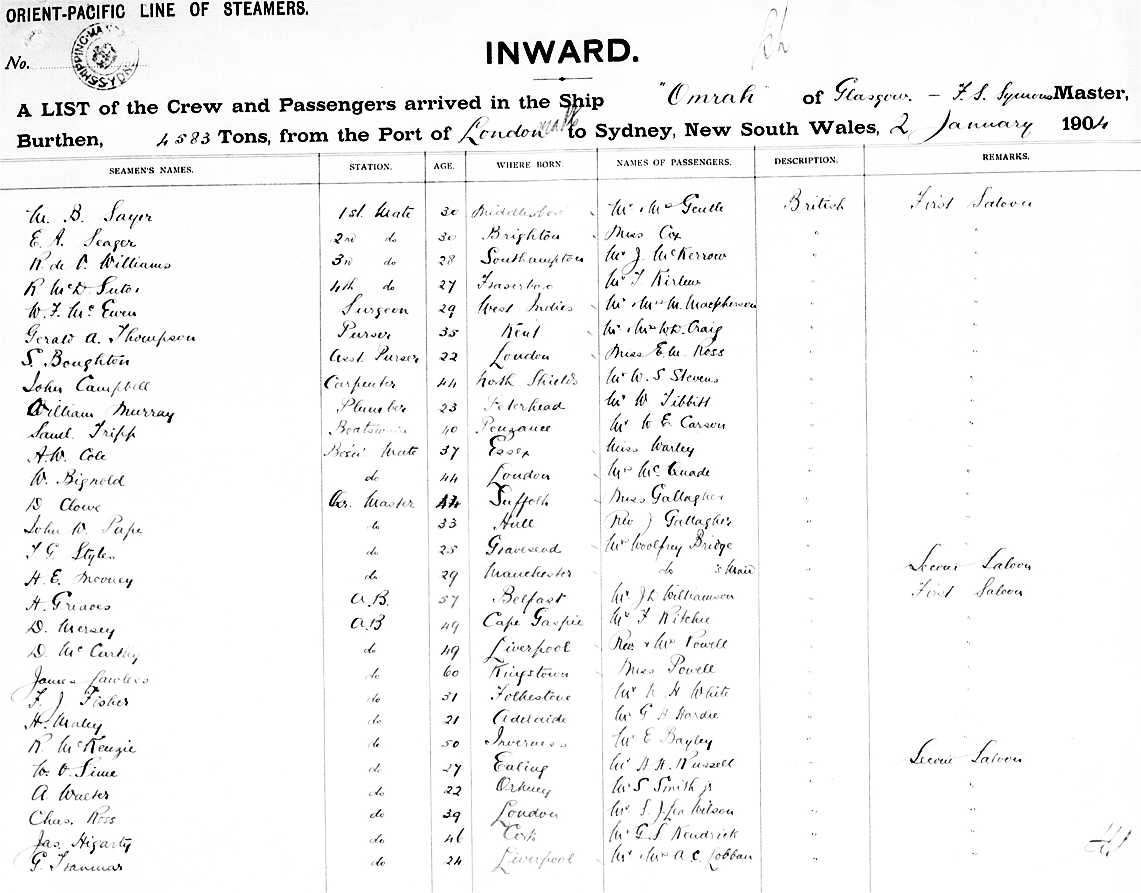 ORIENT-PACIFIC LINE OF STEAMERS.
No.
SHIPPING SYDN
INWARD.
A LIST of the Crew and Passengers arrived in the Ship "Omrah" of Glasgow. - F. S. Symons Master,
Burthen, 4583 Tons, from the Port of London to Sydney, New South Wales, 2 January 1904
SEAMEN'S NAMES. STATION. AGE. WHERE BORN. NAMES OF PASSENGERS. DESCRIPTION. REMARKS.
M. B. Sayer 1st Mate 30 Middlesbro' Mr Mrs Gentle British First Saloon
E. A. Seager 2nd do 30 Brighton Miss Cox "  "
R de C. Williams 3rd do 28 Southampton Mr J McKerrow "  "
R McD Suter 4th do 27 Mr T "  "
W. F. McEwen Surgeon 29 West Indies Mr & Mrs M. Macpherson "  "
Gerald A. Thompson Purser 35 Kent Mr & Mrs Craig "  "
S. Boughton Asst Purser 22 London Miss E M Ross "  "
John Campbell Carpenter 44 North Shields Mr W. S Stevens "  "
William Murray Plumber 23 Peterhead Mr W Tibbitt "  "
Saml. Tripp Boatswain 40 Penzance Mr W E Carson "  "
A. W. Cole Bosn Mate 37 Essex Miss Warley "  "
W. Bignold do 44 London Mrs McQuade "  "
D Clowe Qr. Master 44 Suffolk Miss Gallagher "  "
John W. Pape do 33 Hull Rev J Gallagher "  "
T G. Styles do 25 Gravesend Mr Woolfrey Bridge "  "
H. E. Mooney do 29 Manchester do & Maid " Second Saloon
H. Greaves A.B. 57 Belfast Mr J L Williamson " First Saloon
D. Mersey A.B 49 Cape Gaspie Mr F Ritchie "  "
D. McCarthy do 49 Liverpool Rev & Mrs Powell "  "
James Lawless do 60 Kingstown Miss Powell "  "
F. J Fisher do 31 Folkestone Mr H White "  "
H. Maley do 21 Adelaide Mr G A Hardie "  "
R. McKenzie do 50 Inverness Mr E Bayley "  "
W. O Sime do 27 Ealing Mr A H. Russell " Second Saloon
A. Walter do 22 Orkney Mr S Smith jr "  "
Chas. Ross do 39 London Mr S. J. Wilson "  "
Jas. Higarty do 46 Cork Mr G. S Kendrick "  "
G. do 24 Liverpool Mr & Mrs A C Cobban "  "